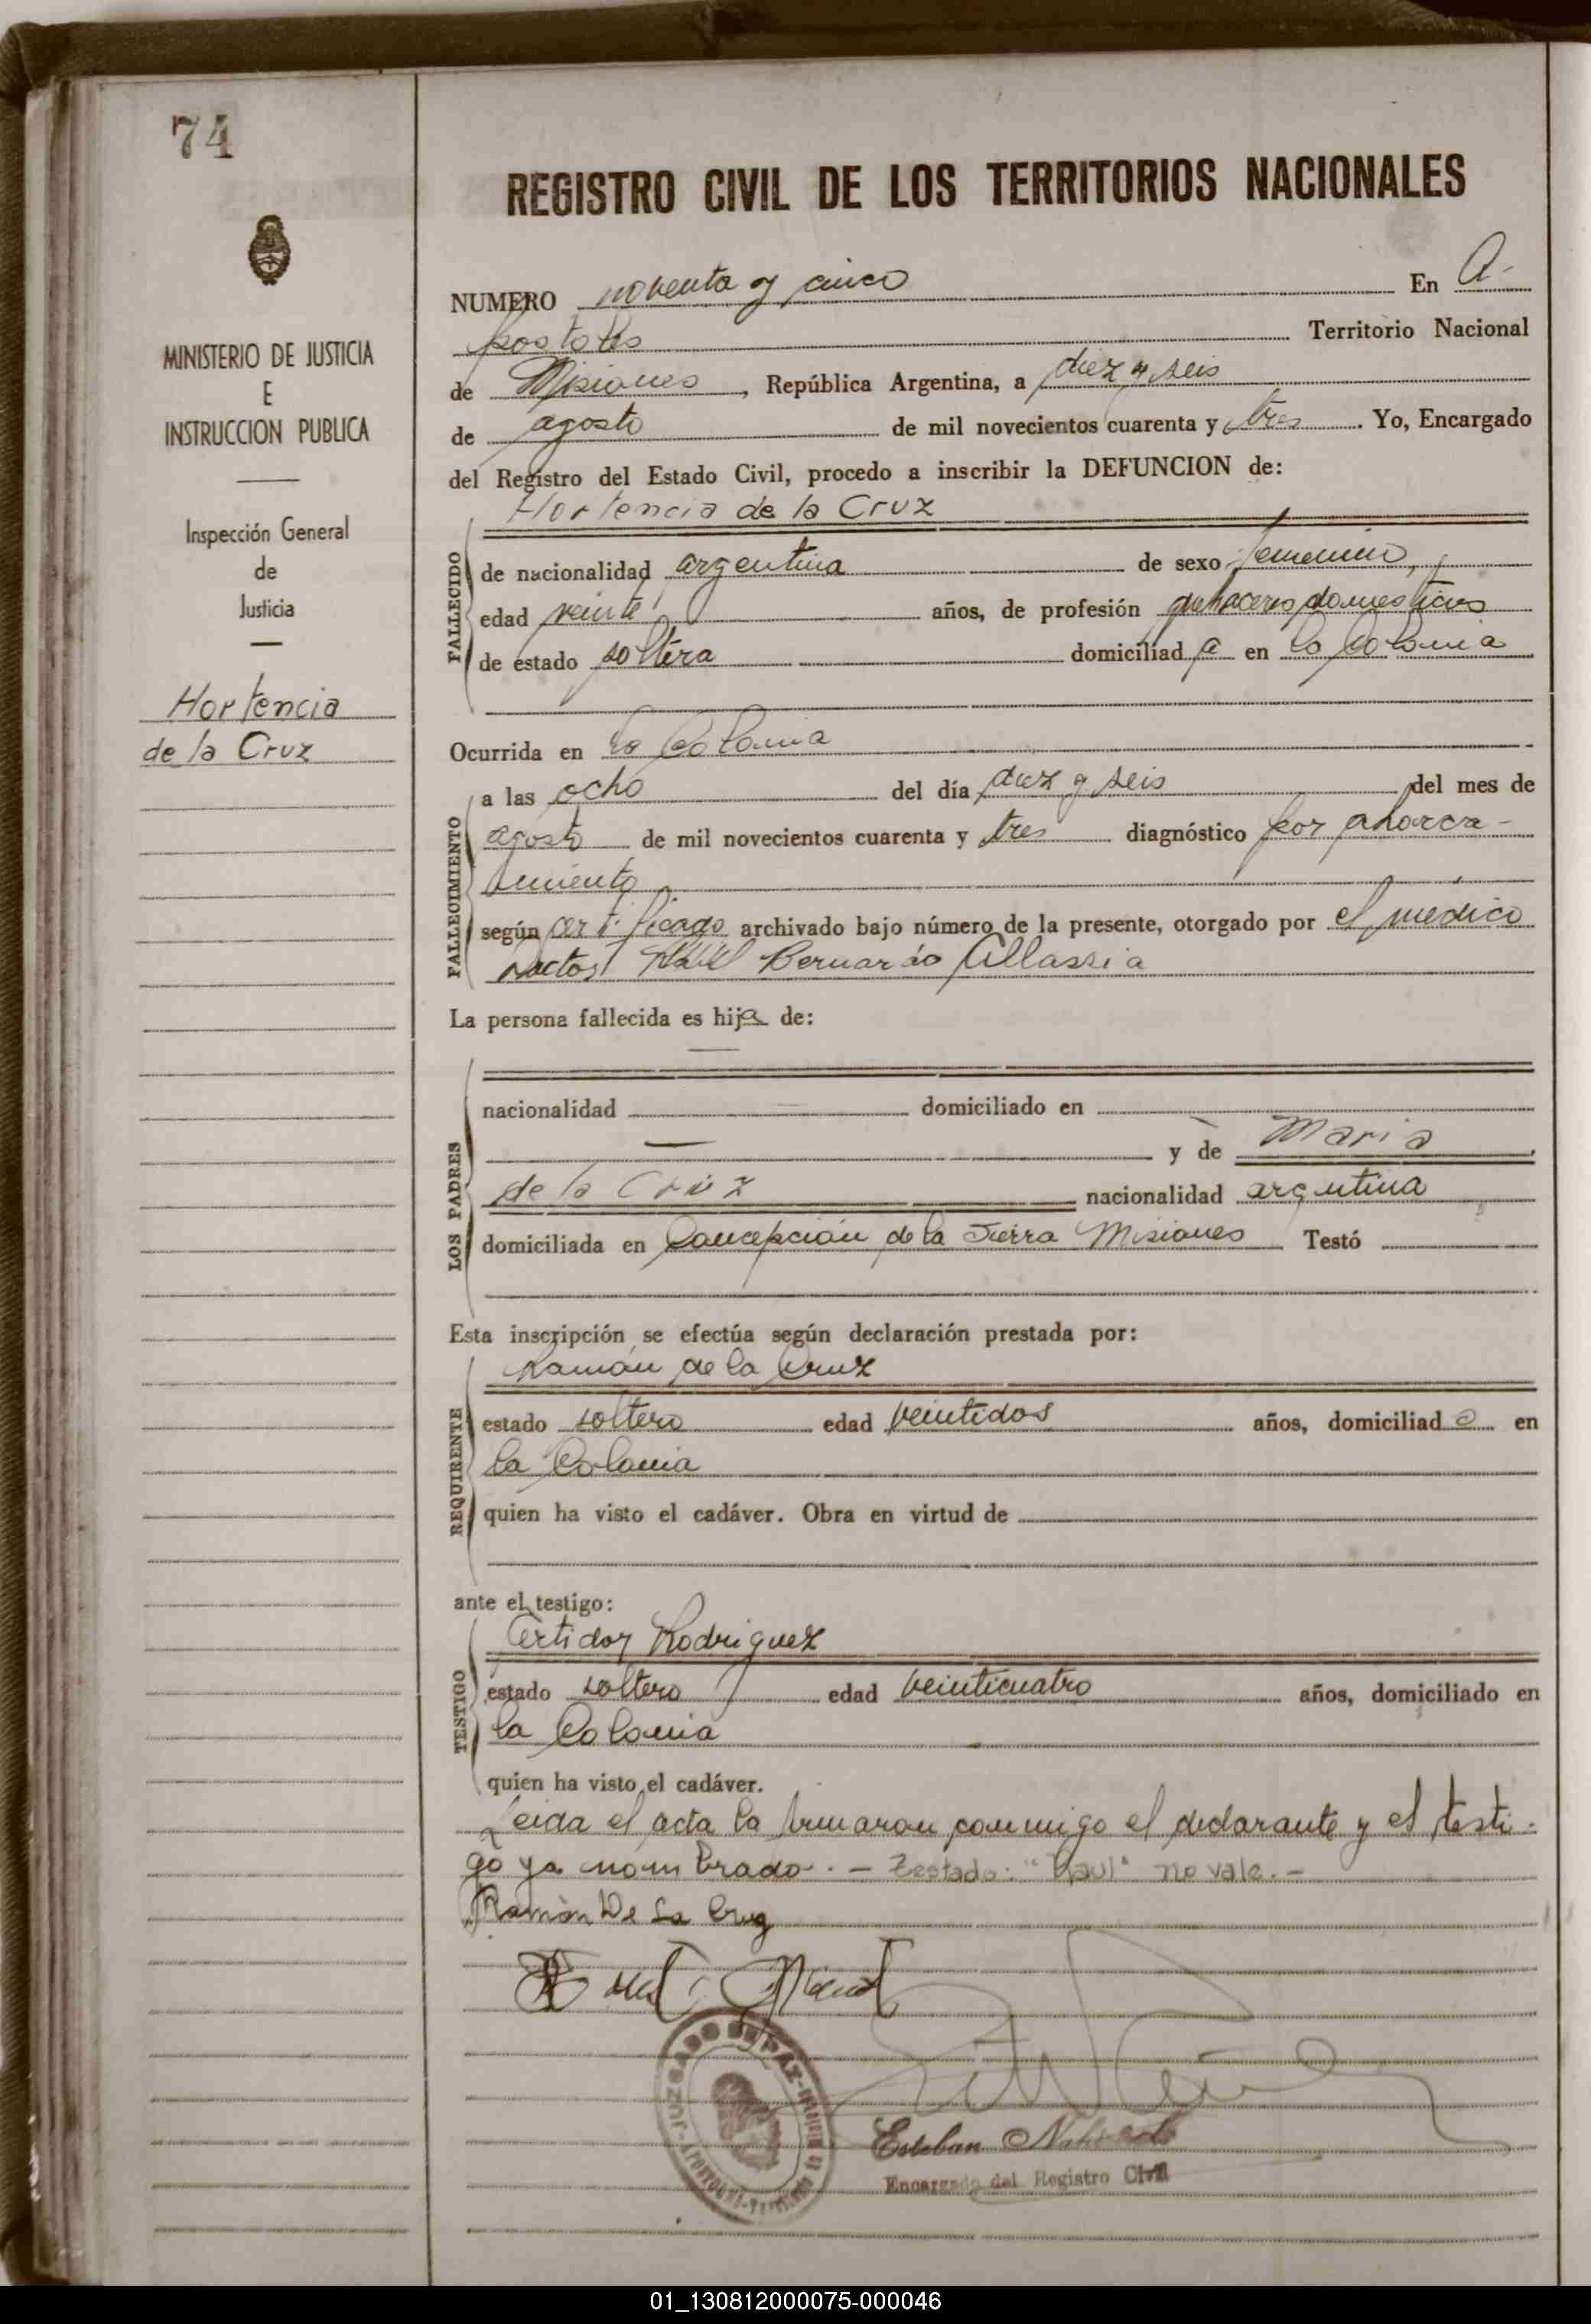 74
REGISTRO CIVIL DE LOS TERRITORIOS NACIONALES
MINISTERIO DE JUSTICIA
E
INSTRUCCION PUBLICA
Inspección General
de
Justicia
Hortencia
de la Cruz
NUMERO noventa y cinco En A-
postoles Territorio Nacional
de Misiones, República Argentina, a diez y seis
de agosto de mil novecientos cuarenta y tres. Yo, Encargado
del Registro del Estado Civil, procedo a inscribir la DEFUNCION de:
Hortencia de la Cruz
FALLECIDO
de nacionalidad argentina de sexo femenino,
edad veinte años, de profesión quehaceres domesticos
de estado soltera domiciliada en la Colonia
Ocurrida en la Colonia
FALLECIMIENTO
a las ocho del día diez y seis del mes de
agosto de mil novecientos cuarenta y tres diagnóstico por ahorca-
miento
según certificado archivado bajo número de la presente, otorgado por el medico
doctor Raul Bernardo Allassia
La persona fallecida es hija de:
LOS PADRES
nacionalidad domiciliado en
y de Maria
de la Cruz nacionalidad argentina
domiciliada en Concepción de la Sierra Misiones Testó
Esta inscripción se efectúa según declaración prestada por:
Ramón de la Cruz
REQUIRENTE
estado soltero edad veintidos años, domiciliado en
la Colonia
quien ha visto el cadáver. Obra en virtud de
ante el testigo:
Rodriguez
TESTIGO
estado soltero edad veinticuatro años, domiciliado en
la Colonia
quien ha visto el cadáver.
Leida el acta la firmaron conmigo el declarante y el testi-
go ya nombrado. - Testado: "Raul" no vale. -
Ramón De La Cruz
JUZGADO DE PAZ
Esteban
Encargado del Registro Civil
01_130812000075-000046